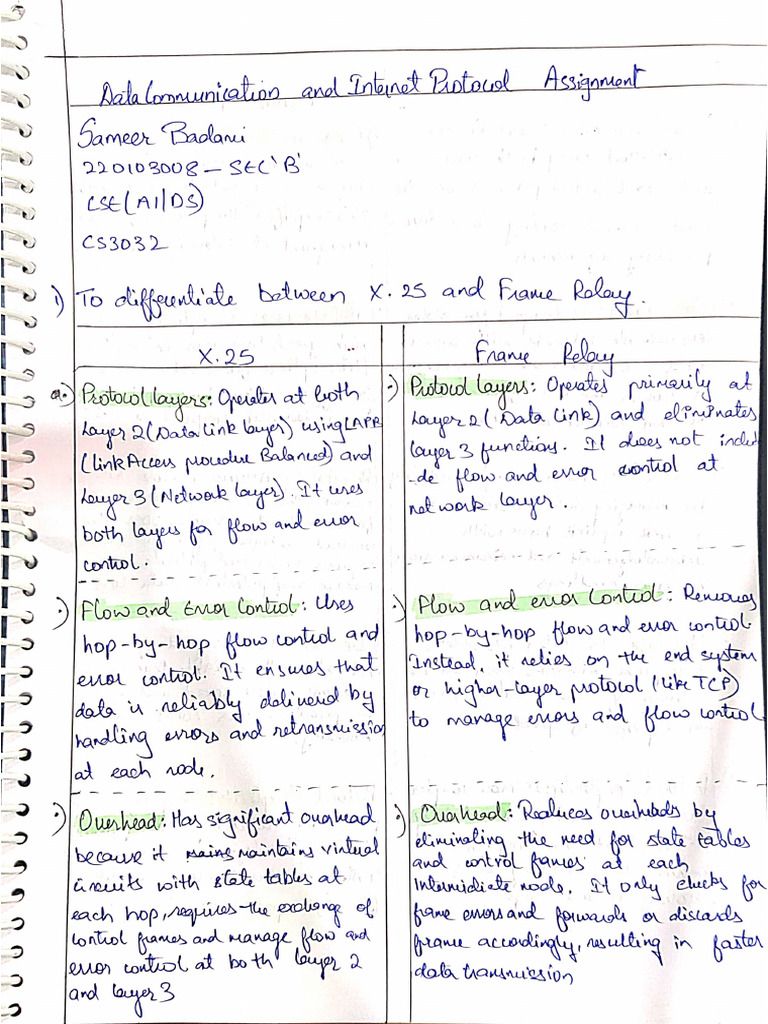 Data Communication and Internet Protocol Assignment
Sameer Badani
220103008 - SEC 'B'
CSE (AI/DS)
CS3032
1) To differentiate between X.25 and Frame Relay.
X.25
a.) Protocol layers: Operates at both
Layer 2 (Data link layer) using LAPB
(Link Access procedure Balanced) and
Layer 3 (Network layer). It uses
both layers for flow and error
control.
.) Flow and Error Control: Uses
hop-by-hop flow control and
error control. It ensures that
data is reliably delivered by
handling errors and retransmission
at each node.
.) Overhead: Has significant overhead
because it maintains virtual
circuits with state tables at
each hop, requires the exchange of
control frames and manage flow and
error control at both layer 2
and layer 3
Frame Relay
.) Protocol layers: Operates primarily at
Layer 2 (Data Link) and eliminates
layer 3 functions. It does not includ
-de flow and error control at
network layer.
.) Flow and error Control: Removes
hop-by-hop flow and error control.
Instead, it relies on the end system
or higher-layer protocol (like TCP)
to manage errors and flow control
.) Overhead: Reduces overheads by
eliminating the need for state tables
and control frames at each
Intermidiate node. It only checks for
frame errors and forwards or discards
frame accordingly, resulting in faster
data transmission